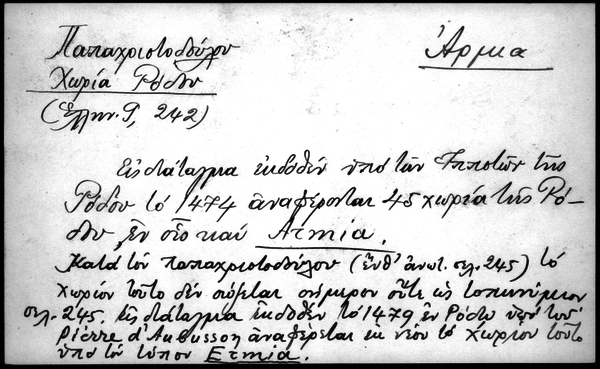 Παπαχριστοδούλου
Ἅρμα
Χωρία Ρόδου
(Ἑλλην. 9, 242)
Εἰς διάταγμα ἐκδοθέν ὑπό τῶν Ἱπποτῶν τῆς
Ρόδου τό 1474 ἀναφέρονται 45 χωρία τῆς Ρό-
δου, ἐν οἷς καί Armia.
Κατά τόν Παπαχριστοδούλου (ἔνθ' ἀνωτ. σελ. 245) τό
χωρίον τοῦτο δέν σώζεται σήμερον οὔτε ὡς τοπωνύμιον
σελ. 245. Εἰς διάταγμα ἐκδοθέν τό 1479 ἐν Ρόδῳ ὑπό τοῦ
Pierre d'Aubusson ἀναφέρεται ἐκ νέου τό χωρίον τοῦτο
ὑπό τόν τύπον Ermia.